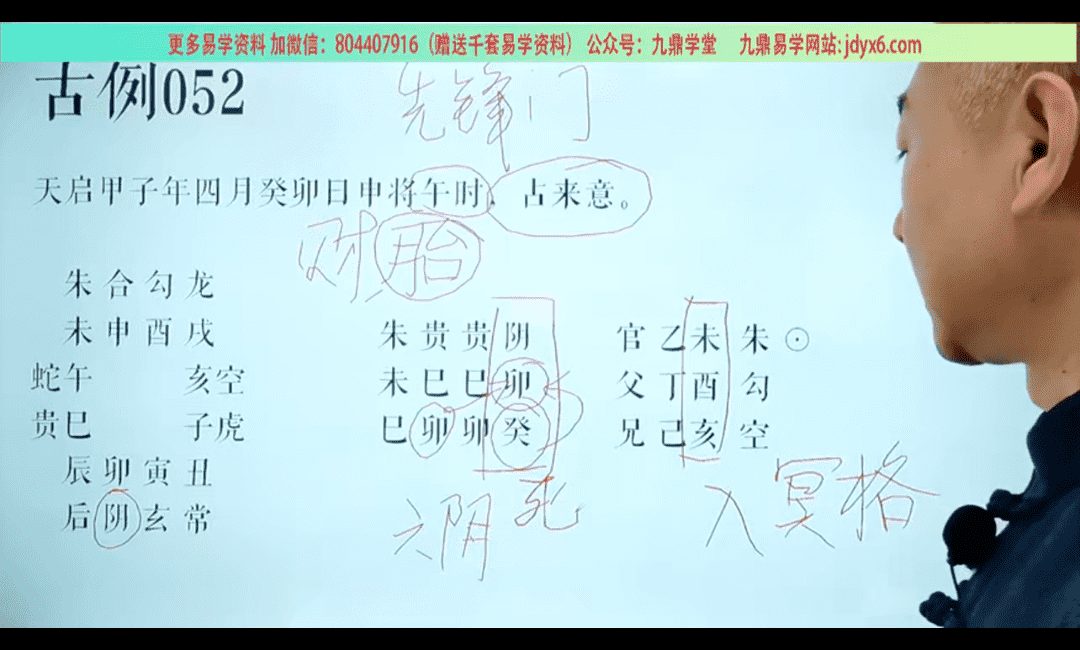 更多易学资料 加微信：804407916（赠送千套易学资料） 公众号：九鼎学堂 九鼎易学网站: jdyx6.com
古例052
先锋门
天启甲子年四月癸卯日申将午时，占来意。
财 胎
朱合勾龙
未申酉戌
蛇午 亥空
贵巳 子虎
辰卯寅丑
后阴玄常
朱贵贵阴
未巳巳卯
巳卯卯癸
官乙未朱⊙
父丁酉勾
兄己亥空
六阴 死
入冥格